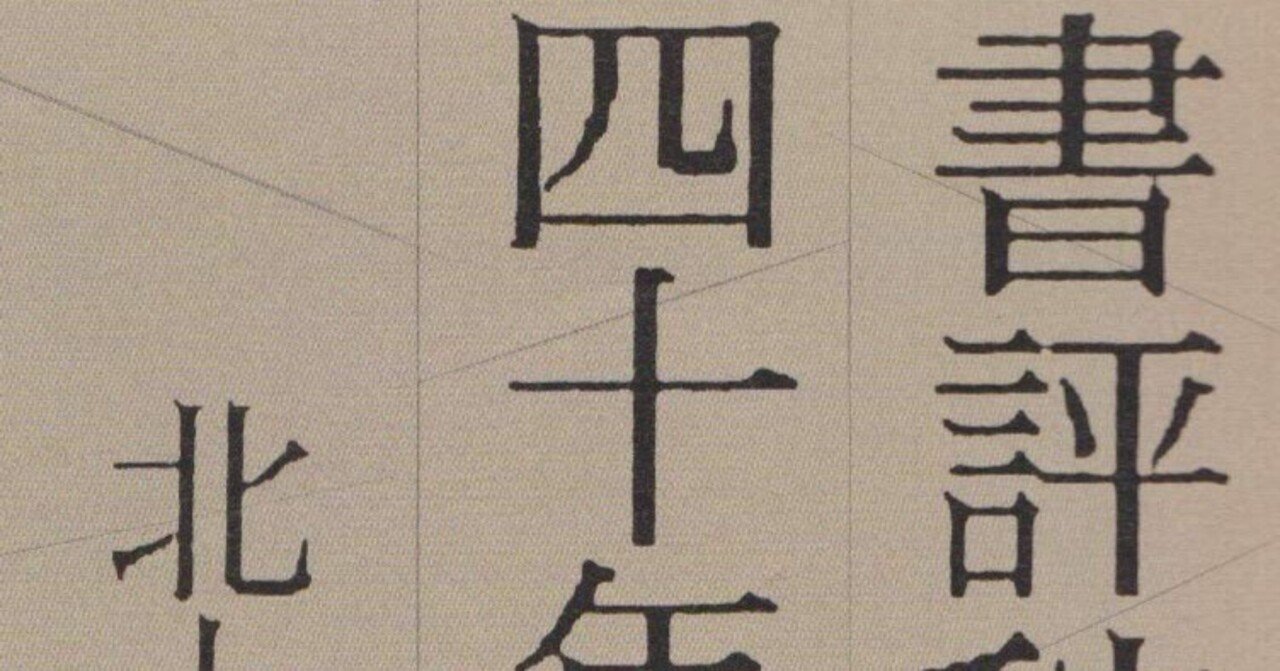 書評
四十年
北